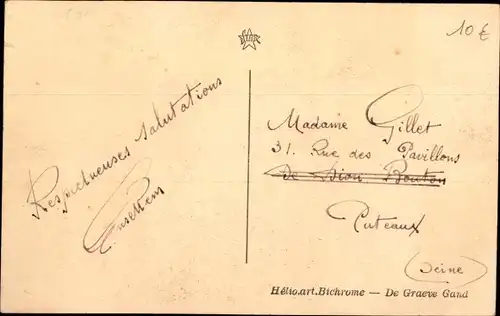 STAR
10 €
Respectueuses salutations
Madame Gillet
31. Rue des Pavillons
De Dion Bouton
Puteaux
(Seine)
Hélio.art.Bichrome — De Graeve Gand